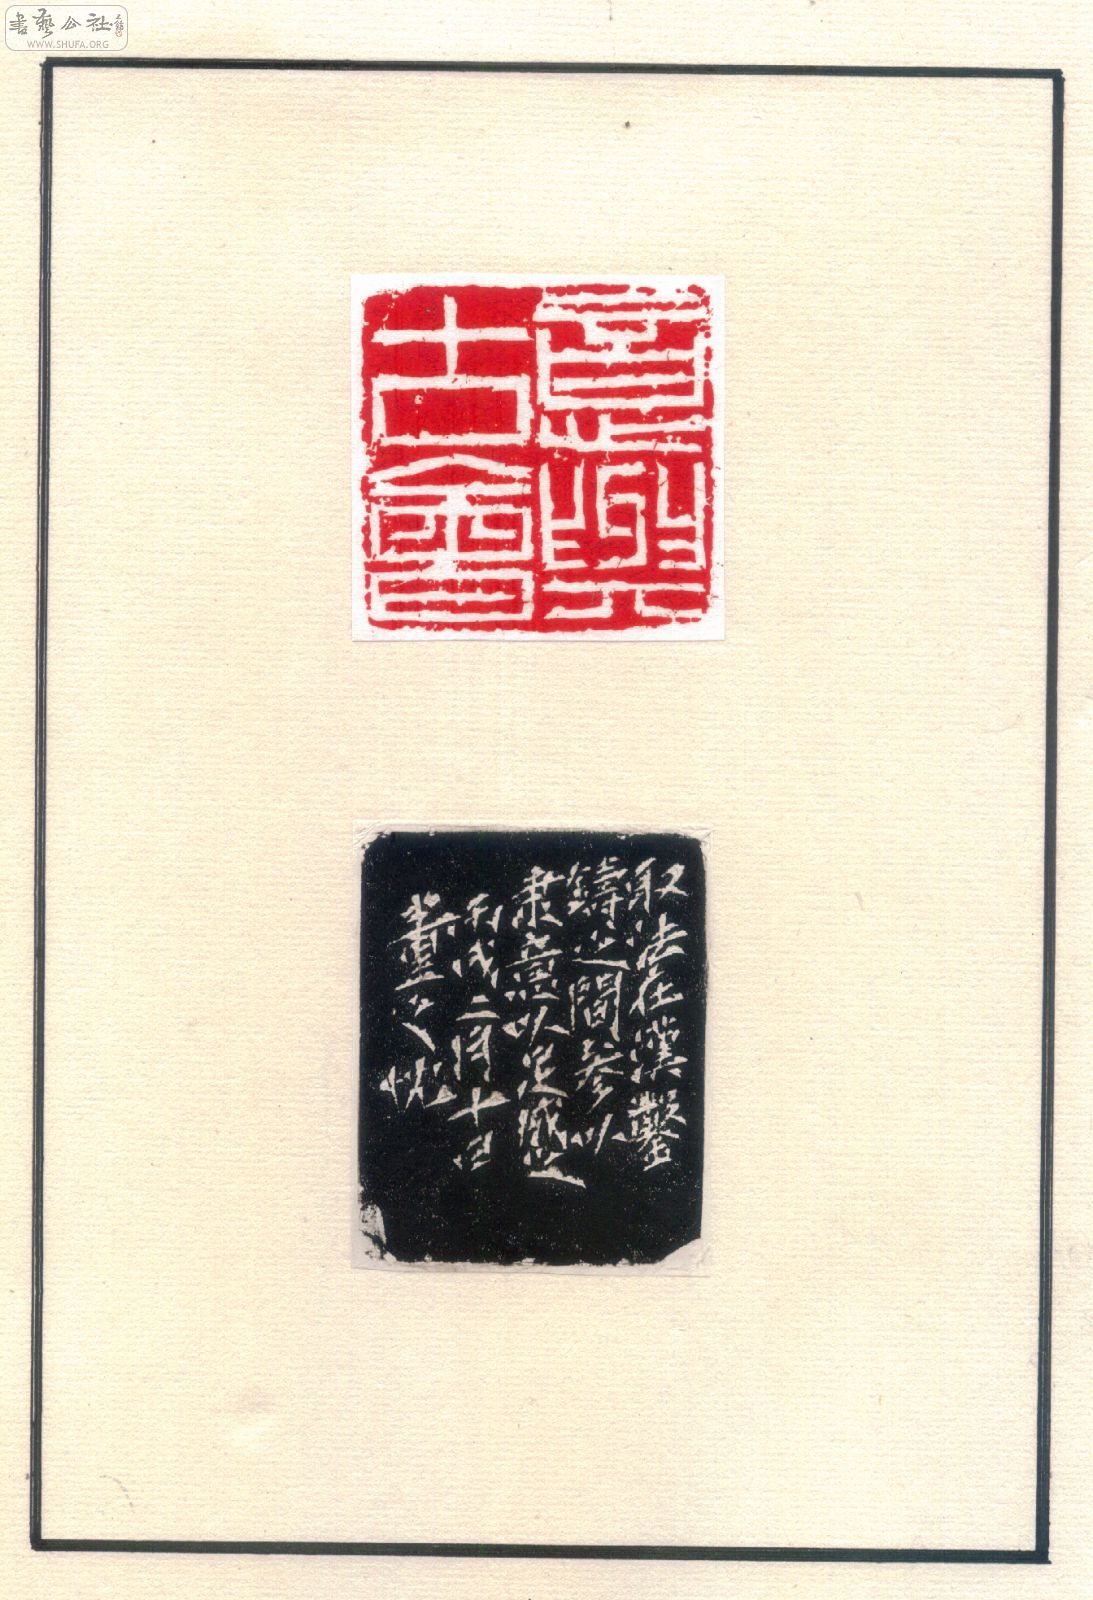 書藝公社
WWW.SHUFA.ORG
意與
古會
取法在漢鑿
鑄之間參以
意以足之
丙戌二月十日